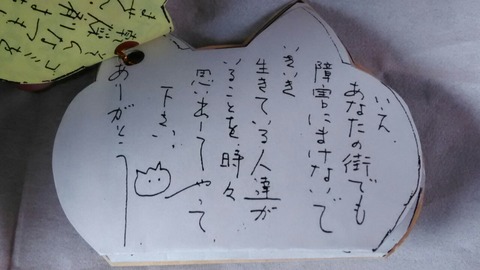 いえ
あなたの街でも
障害にまけないで
いきいき
生きている人達が
いることを時々
思いあーてやって
下さい
あーがとう